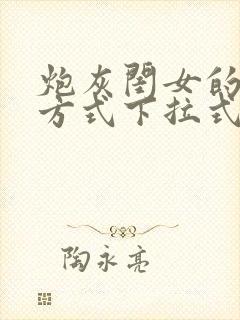 炮灰闺女的
方式下拉式
陶永亮